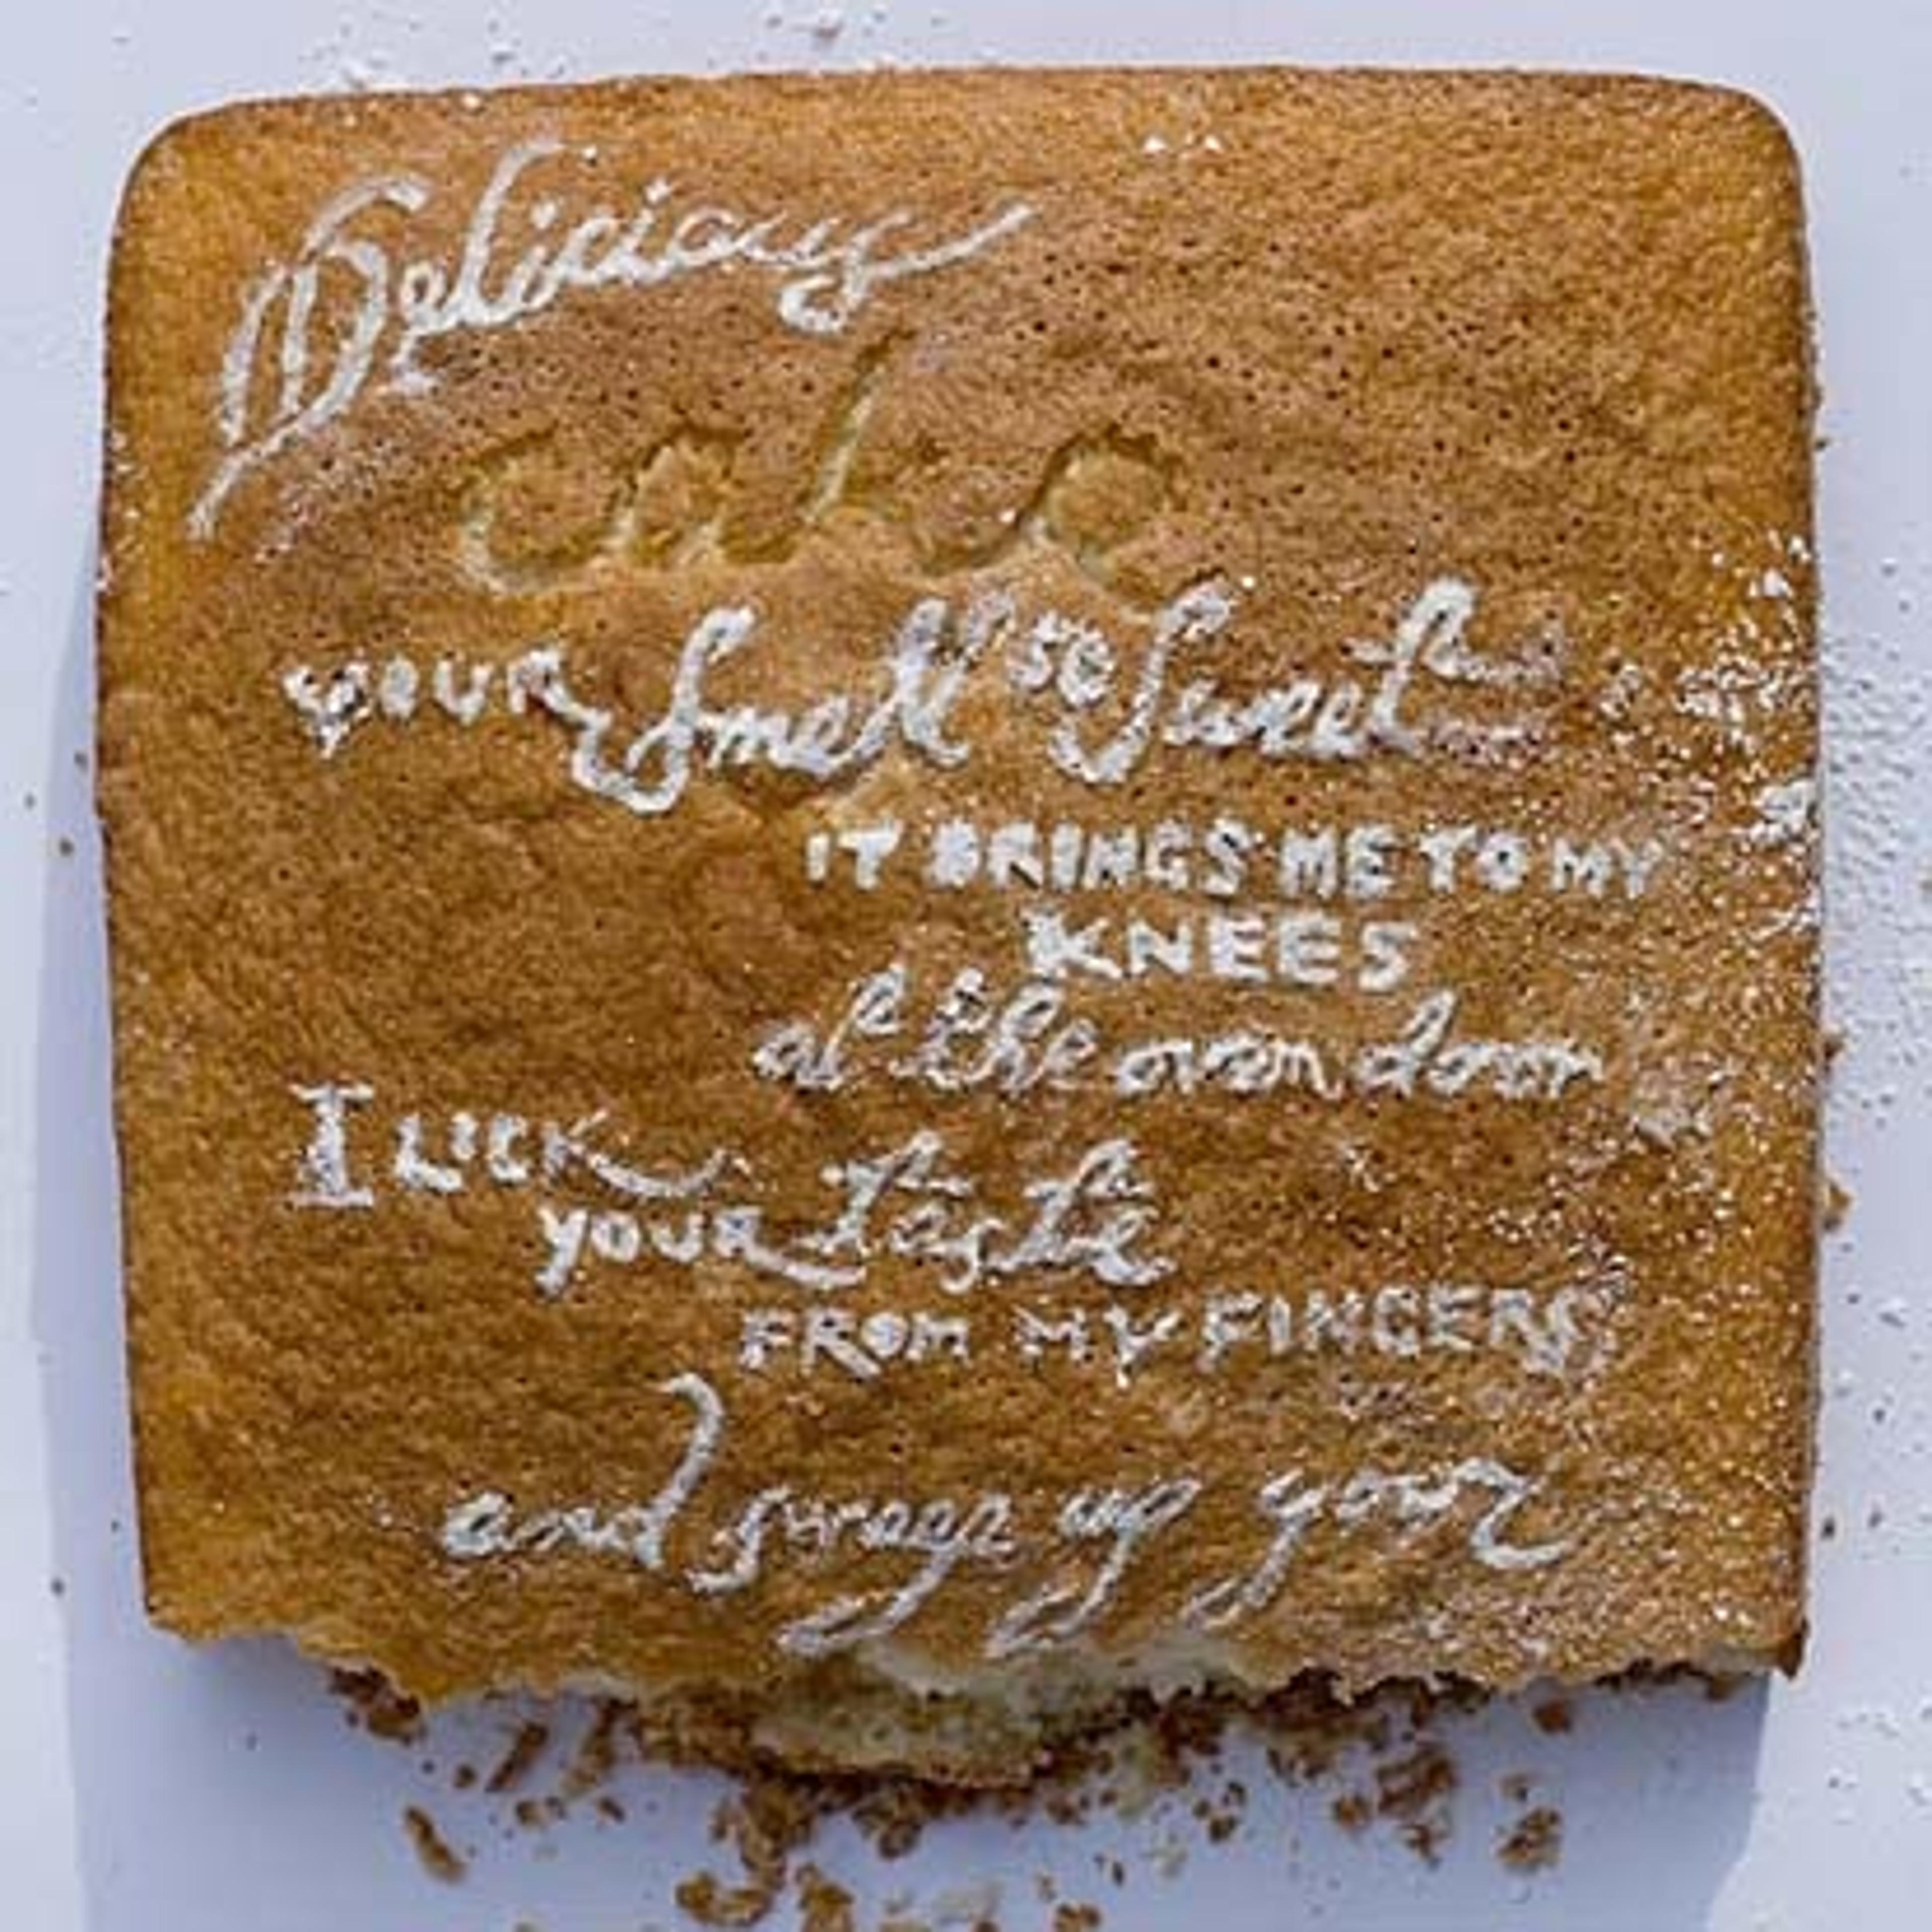 Delicious
cake
YOUR Smell so Sweet
IT BRINGS ME TO MY
KNEES
at the oven door
I LICK
YOUR taste
FROM MY FINGERS
and sweep up your